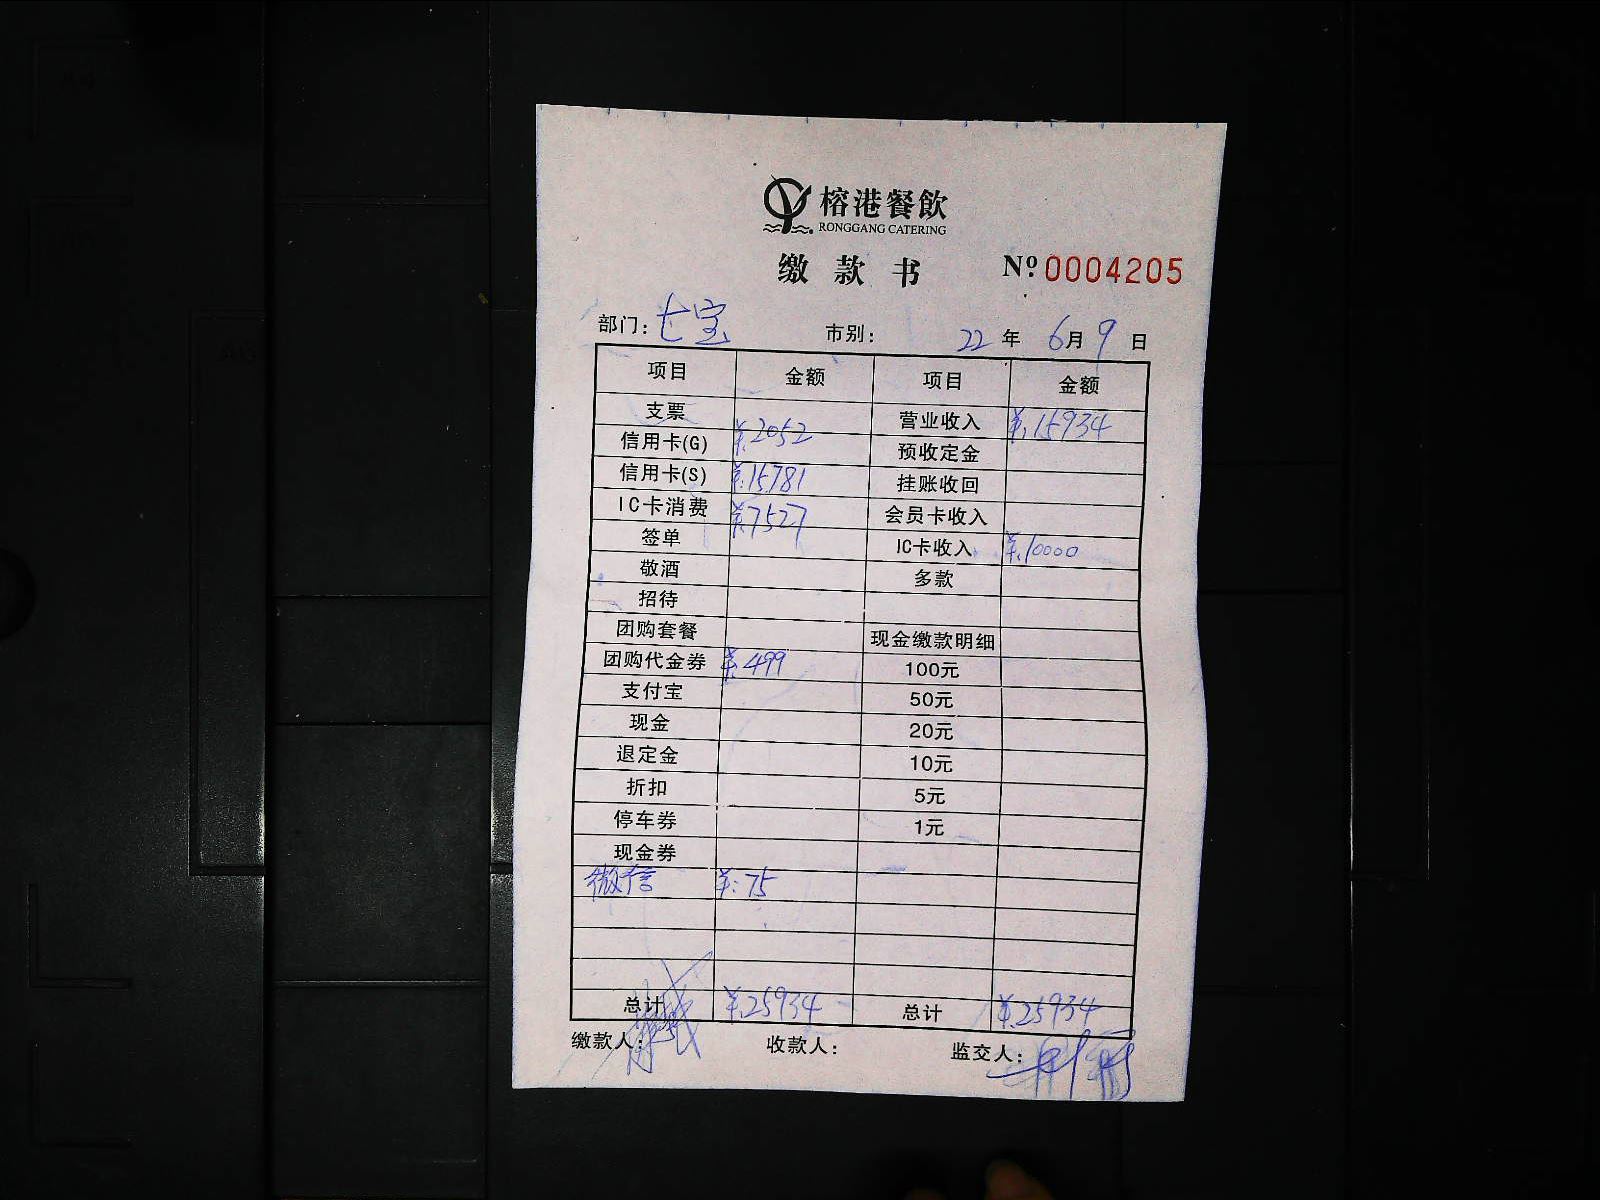 榕港餐飲
RONGGANG CATERING
缴款书 Nº 0004205
部门：七宝 市别： 22年 6月 9日
项目 金额 项目 金额
支票 营业收入 ¥:15934
信用卡(G) ¥:2052 预收定金
信用卡(S) ¥:15781 挂账收回
IC卡消费 ¥:7527 会员卡收入
签单 IC卡收入 ¥:10000
敬酒 多款
招待
团购套餐 现金缴款明细
团购代金券 ¥:499 100元
支付宝 50元
现金 20元
退定金 10元
折扣 5元
停车券 1元
现金券
微信 ¥:75
总计 ¥:25934 总计 ¥:25934
缴款人： 收款人： 监交人：